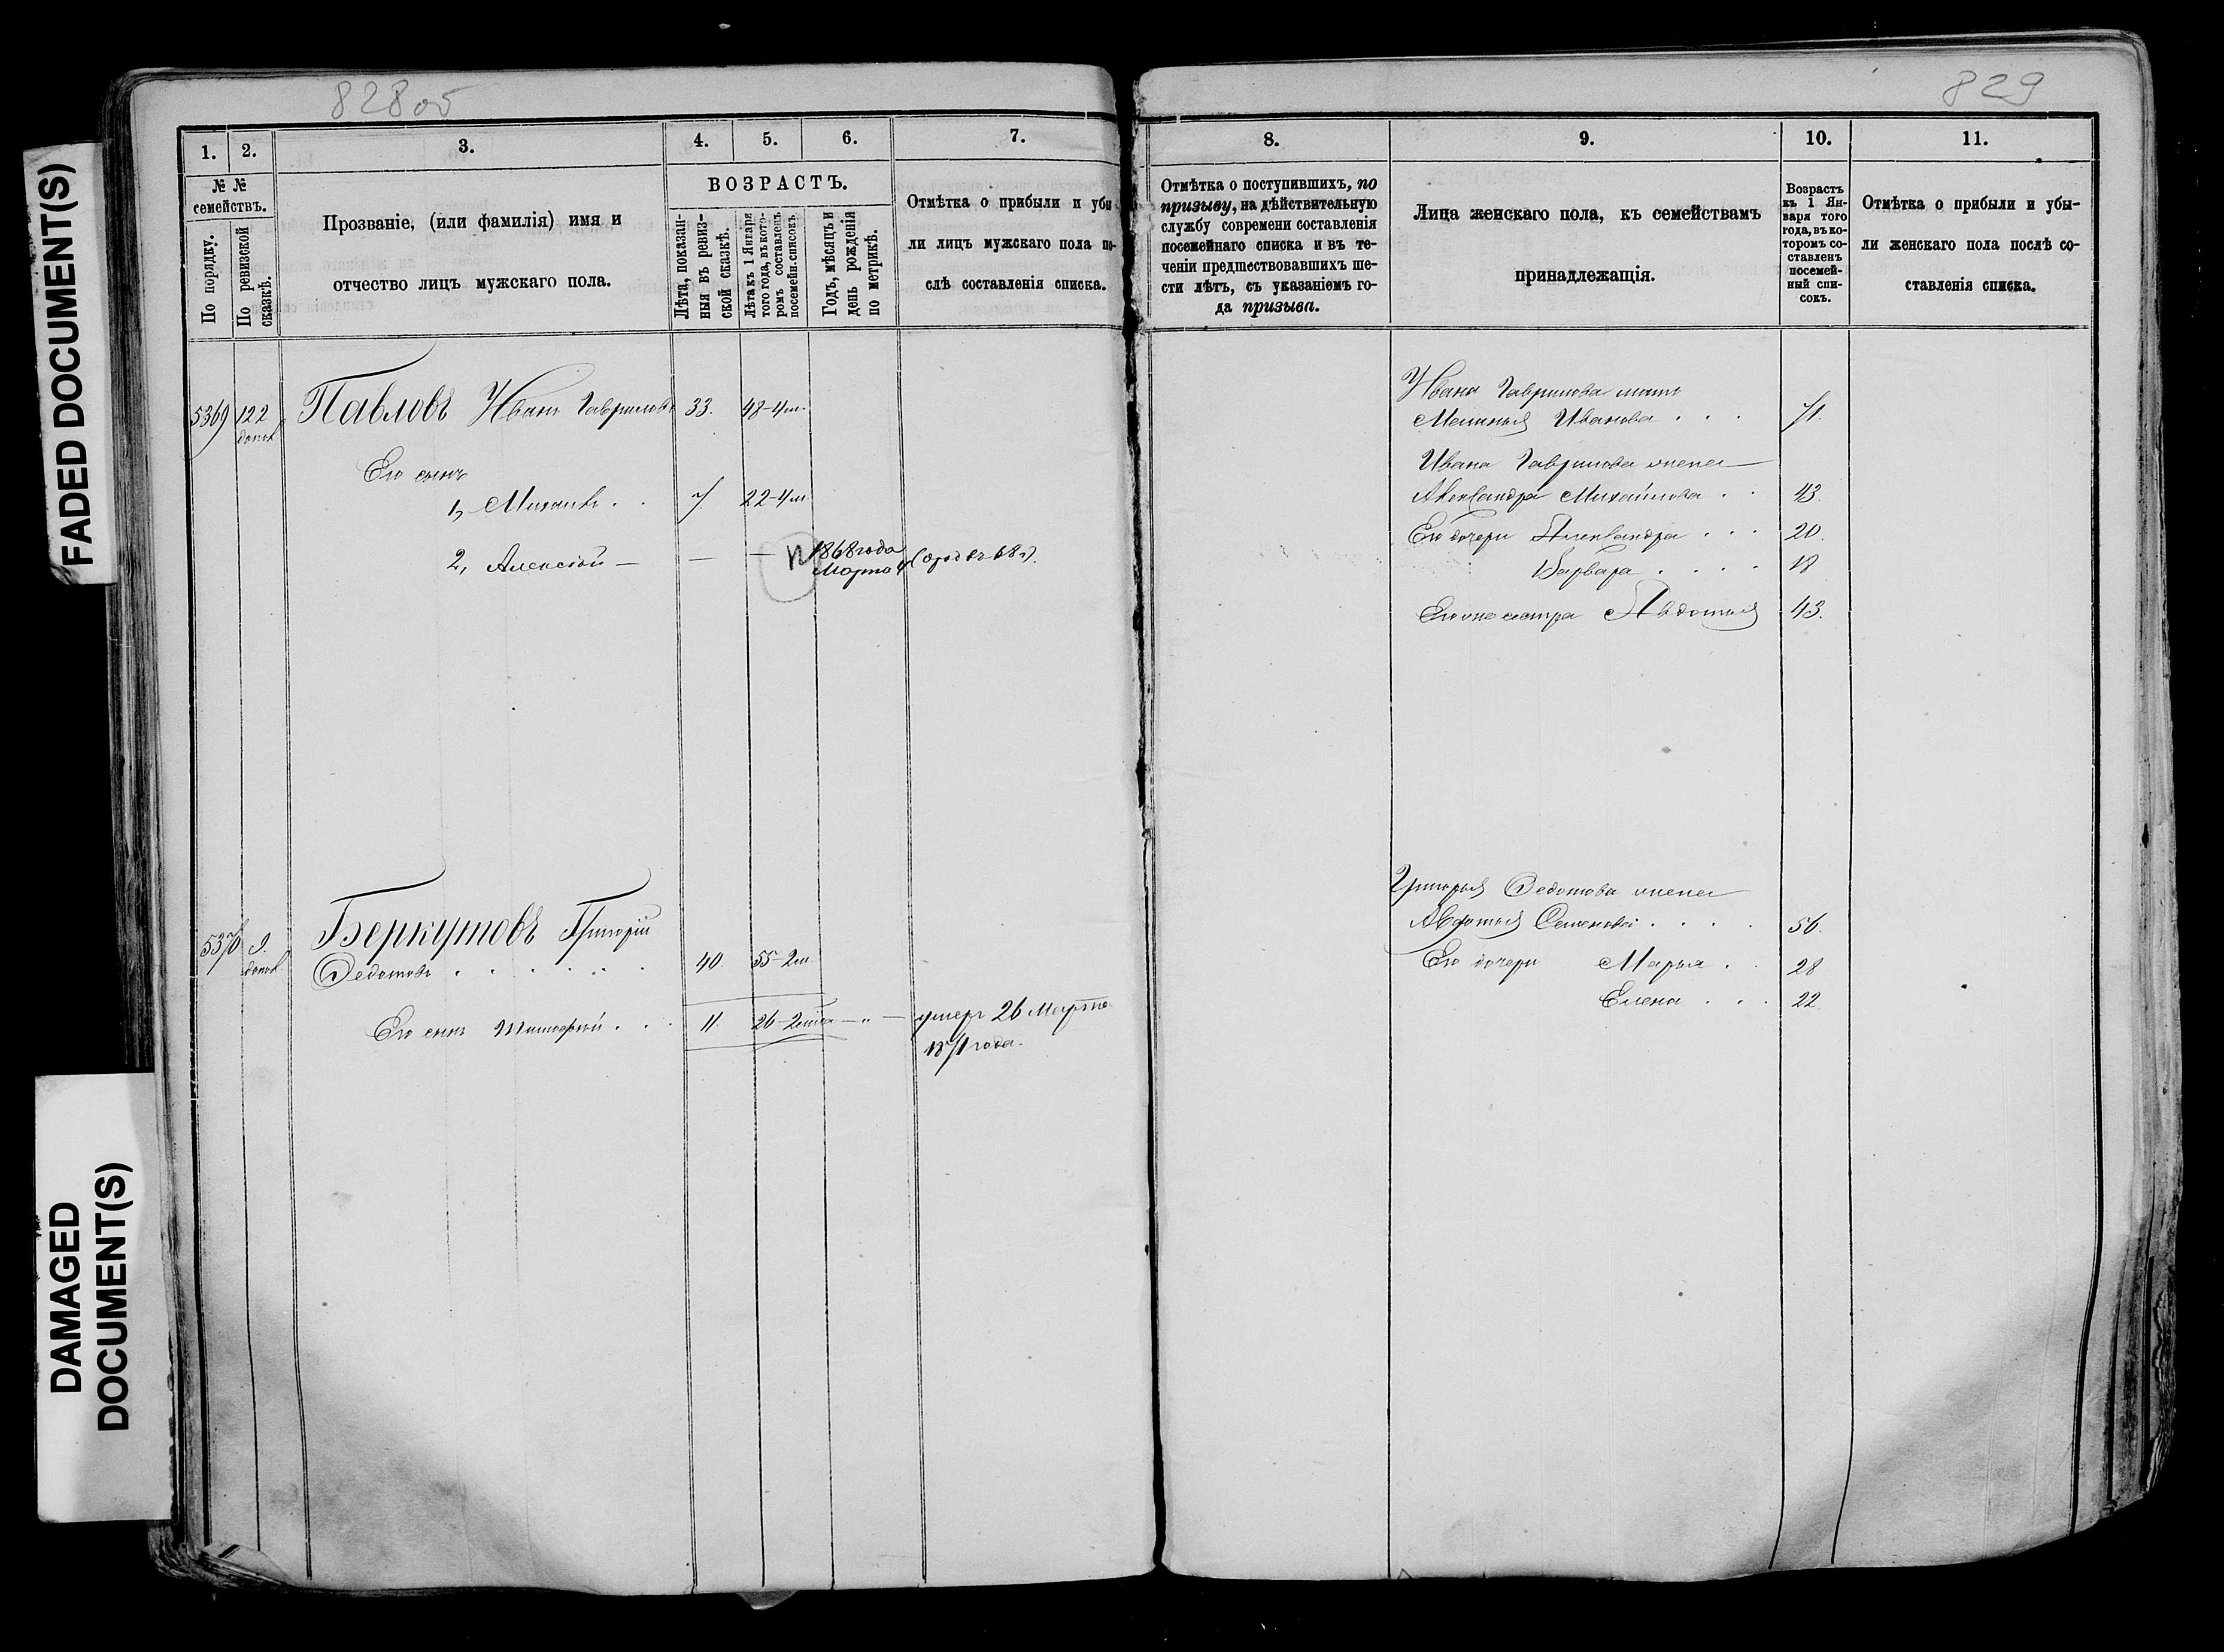 FADED DOCUMENT(S)
DAMAGED
DOCUMENT(S)
828об
1. 2. 3. 4. 5. 6. 7.
№ №
семействъ.
По порядку.
По ревизской
сказкѣ.
Прозваніе, (или фамилія) имя и
отчество лицъ мужскаго пола.
ВОЗРАСТЪ.
Лѣта, показан-
ныя въ ревиз-
ской сказкѣ.
Лѣта къ 1 Января
того года, въ кото-
ромъ составленъ
посемейн. списокъ.
Годъ, мѣсяцъ и
день рожденія
по метрикѣ.
Отмѣтка о прибыли и убы-
ли лицъ мужскаго пола по-
слѣ составленія списка.
5369 122 Павловъ Иванъ Гавриловъ 33. 48-4м.
допол.
Его сынъ
1, Михаилъ . . 7. 22-4м.
2, Алексѣй — — — 1868 года
Марта 4
5370 9. Беркутовъ Григорій
допол. Федотовъ 40. 55-2м.
Его сынъ Тимофей . . . 11. 26-2м — " — умеръ 26 Марта
1871 года.
829
8. 9. 10. 11.
Отмѣтка о поступившихъ, по
призыву, на дѣйствительную
службу современи составленія
посемейнаго списка и въ те-
ченіи предшествовавшихъ ше-
сти лѣтъ, съ указаніемъ го-
да призыва.
Лица женскаго пола, къ семействамъ
принадлежащія.
Возрастъ
къ 1 Ян-
варя того
года, въ ко-
торомъ со-
ставленъ
посемей-
ный спи-
сокъ.
Отмѣтка о прибыли и убы-
ли женскаго пола послѣ со-
ставленія списка.
Ивана Гаврилова мать
Маланья Иванова . . . 71.
Ивана Гаврилова жена
Александра Михайлова . . 43.
Его дочери Александра . . . 20.
Варвара . . . . 18
Его же сестра Авдотья 43.
Григорья Федотова жена
Авдотья Семенова . . . . 56.
Его дочери Марья . . 28
Елена . . . 22